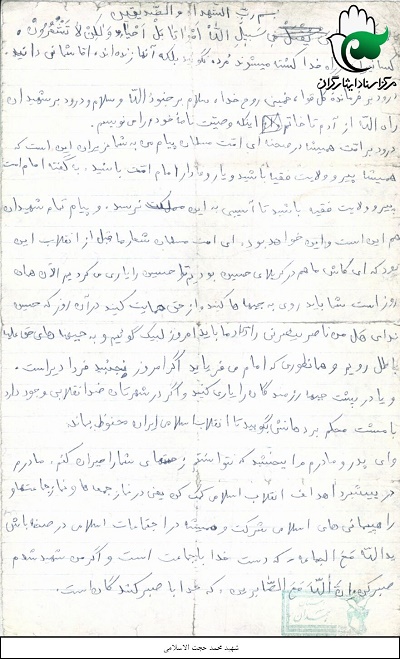 بسم رب الشهداء و الصدیقین
فی سبیل اللّه امواتا بل احیاء ولکن لا تشعرون
راه خدا کشته میشوند مرده نگویید بلکه آنها زنده‌اند، اما شما نمی دانید.
درود بر فرمانده کل قوا، خمینی روح خدا، سلام بر جنود اللّه و سلام و درود بر شهیدان
راه اللّه از آدم تا خاتم اینک وصیت نامه خود را می نویسم
درود بر امت همیشه در صحنه ای امت مسلمان پیام من به شما عزیزان این است که
همیشه پیرو ولایت فقیه باشید و یار و وفادار امام امت باشید. به گفته امام امت
پیرو ولایت فقیه باشید تا آسیبی به این مملکت نرسد. و پیام تمام شهیدان
هم این است و این خواهد بود. ای امت مسلمان شعار ما قبل از انقلاب این
بود که ای کاش ما هم در کربلای حسین بودیم تا حسین را یاری می کردیم الان همان
روز است شما باید روی به جبهه‌ها کنید. از حق حمایت کنید در آن روز که حسین
ندای هل من ناصر ینصرنی را داد ما باید امروز لبیک گوئیم و به جبهه های حق علیه
باطل رویم و همانطوری که امام می فرماید اگر امروز نجنبید فردا دیر است.
و یا در پشت جبهه رزمندگان را یاری کنید و اگر در شهرتان ضد انقلابی وجود دارد
با مشت محکم بر دهانش بکوبید تا انقلاب اسلامی ایران محفوظ بماند.
وای پدر و مادرم مرا ببخشید که نتوانستم زحمتهای شما را جبران کنم. مادرم
در پیشبرد اهداف انقلاب اسلامی کمک کن یعنی در نماز جمعه‌ها و نماز جماعتها و
راهپیمائی های اسلامی شرکت و همیشه در اجتماعات اسلامی در صحنه باش
یداللّه مع الجماعه، که دست خدا با جماعت است و اگر من شهید شدم
صبر کن ان اللّه مع الصابرین، که خدا با صبر کنندگان است.
مرکز اسناد ایثارگران
شهید محمد حجت الاسلامی